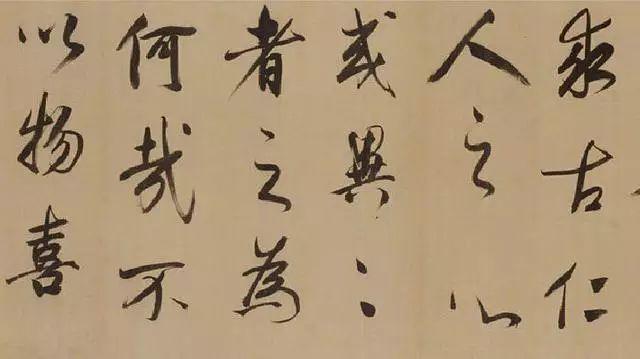 求古仁
人之心
或異二
者之為
何哉不
以物喜